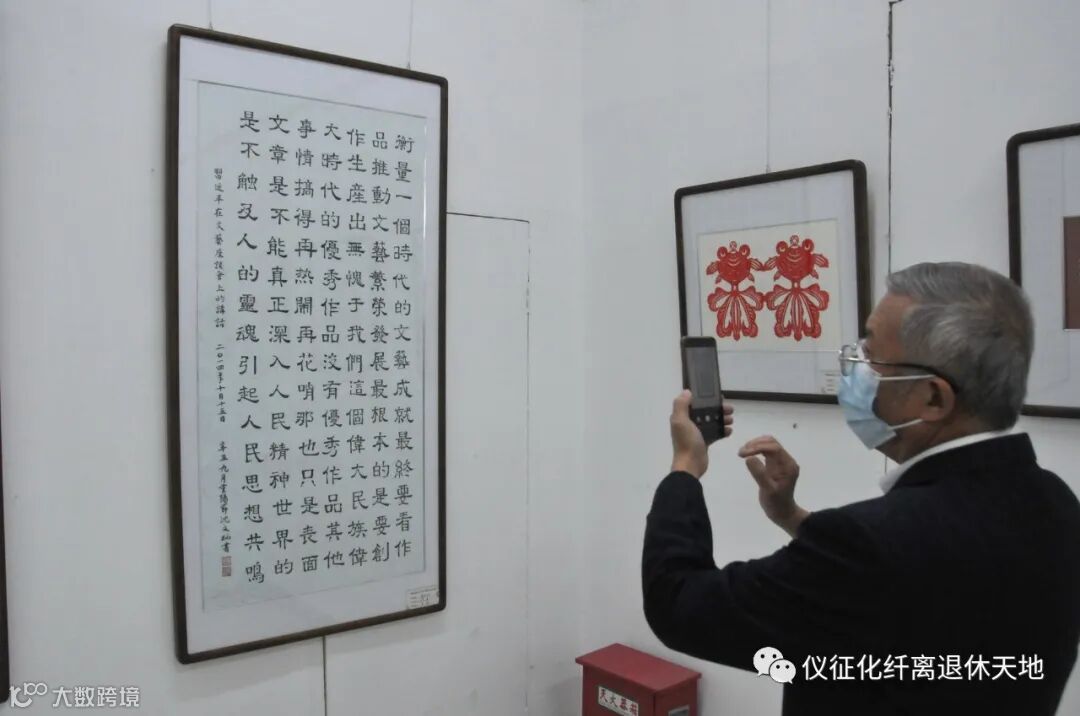 衡量一個時代的文藝成就最終要看作
品推動文藝繁榮發展最根本的是要創
作生産出無愧于我們這個偉大民族偉
大時代的優秀作品沒有優秀作品其他
事情搞得再熱鬧再花哨那也只是表面
文章是不能真正深入人民精神世界的
是不触及人的靈魂引起人民思想共鳴
習近平在文藝座談會上的講話 二〇一四年十月十五日 辛丑九月重陽節沈文灿書
灭火器箱
仪征化纤离退休天地
大数跨境